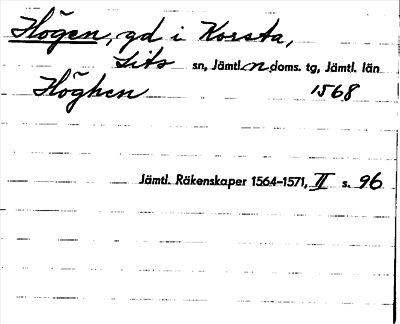 Högen, gd i Korsta,
Lits sn, Jämtl. n doms. tg, Jämtl. län
Höghen 1568
Jämtl. Räkenskaper 1564–1571, II s. 96